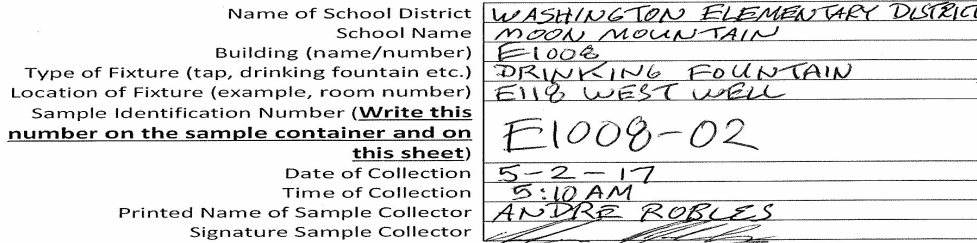 Name of School District WASHINGTON ELEMENTARY DISTRICT
School Name MOON MOUNTAIN
Building (name/number) E1008
Type of Fixture (tap, drinking fountain etc.) DRINKING FOUNTAIN
Location of Fixture (example, room number) E118 WEST WELL
Sample Identification Number (Write this
number on the sample container and on
this sheet) E1008-02
Date of Collection 5-2-17
Time of Collection 5:10 AM
Printed Name of Sample Collector ANDRE ROBLES
Signature Sample Collector